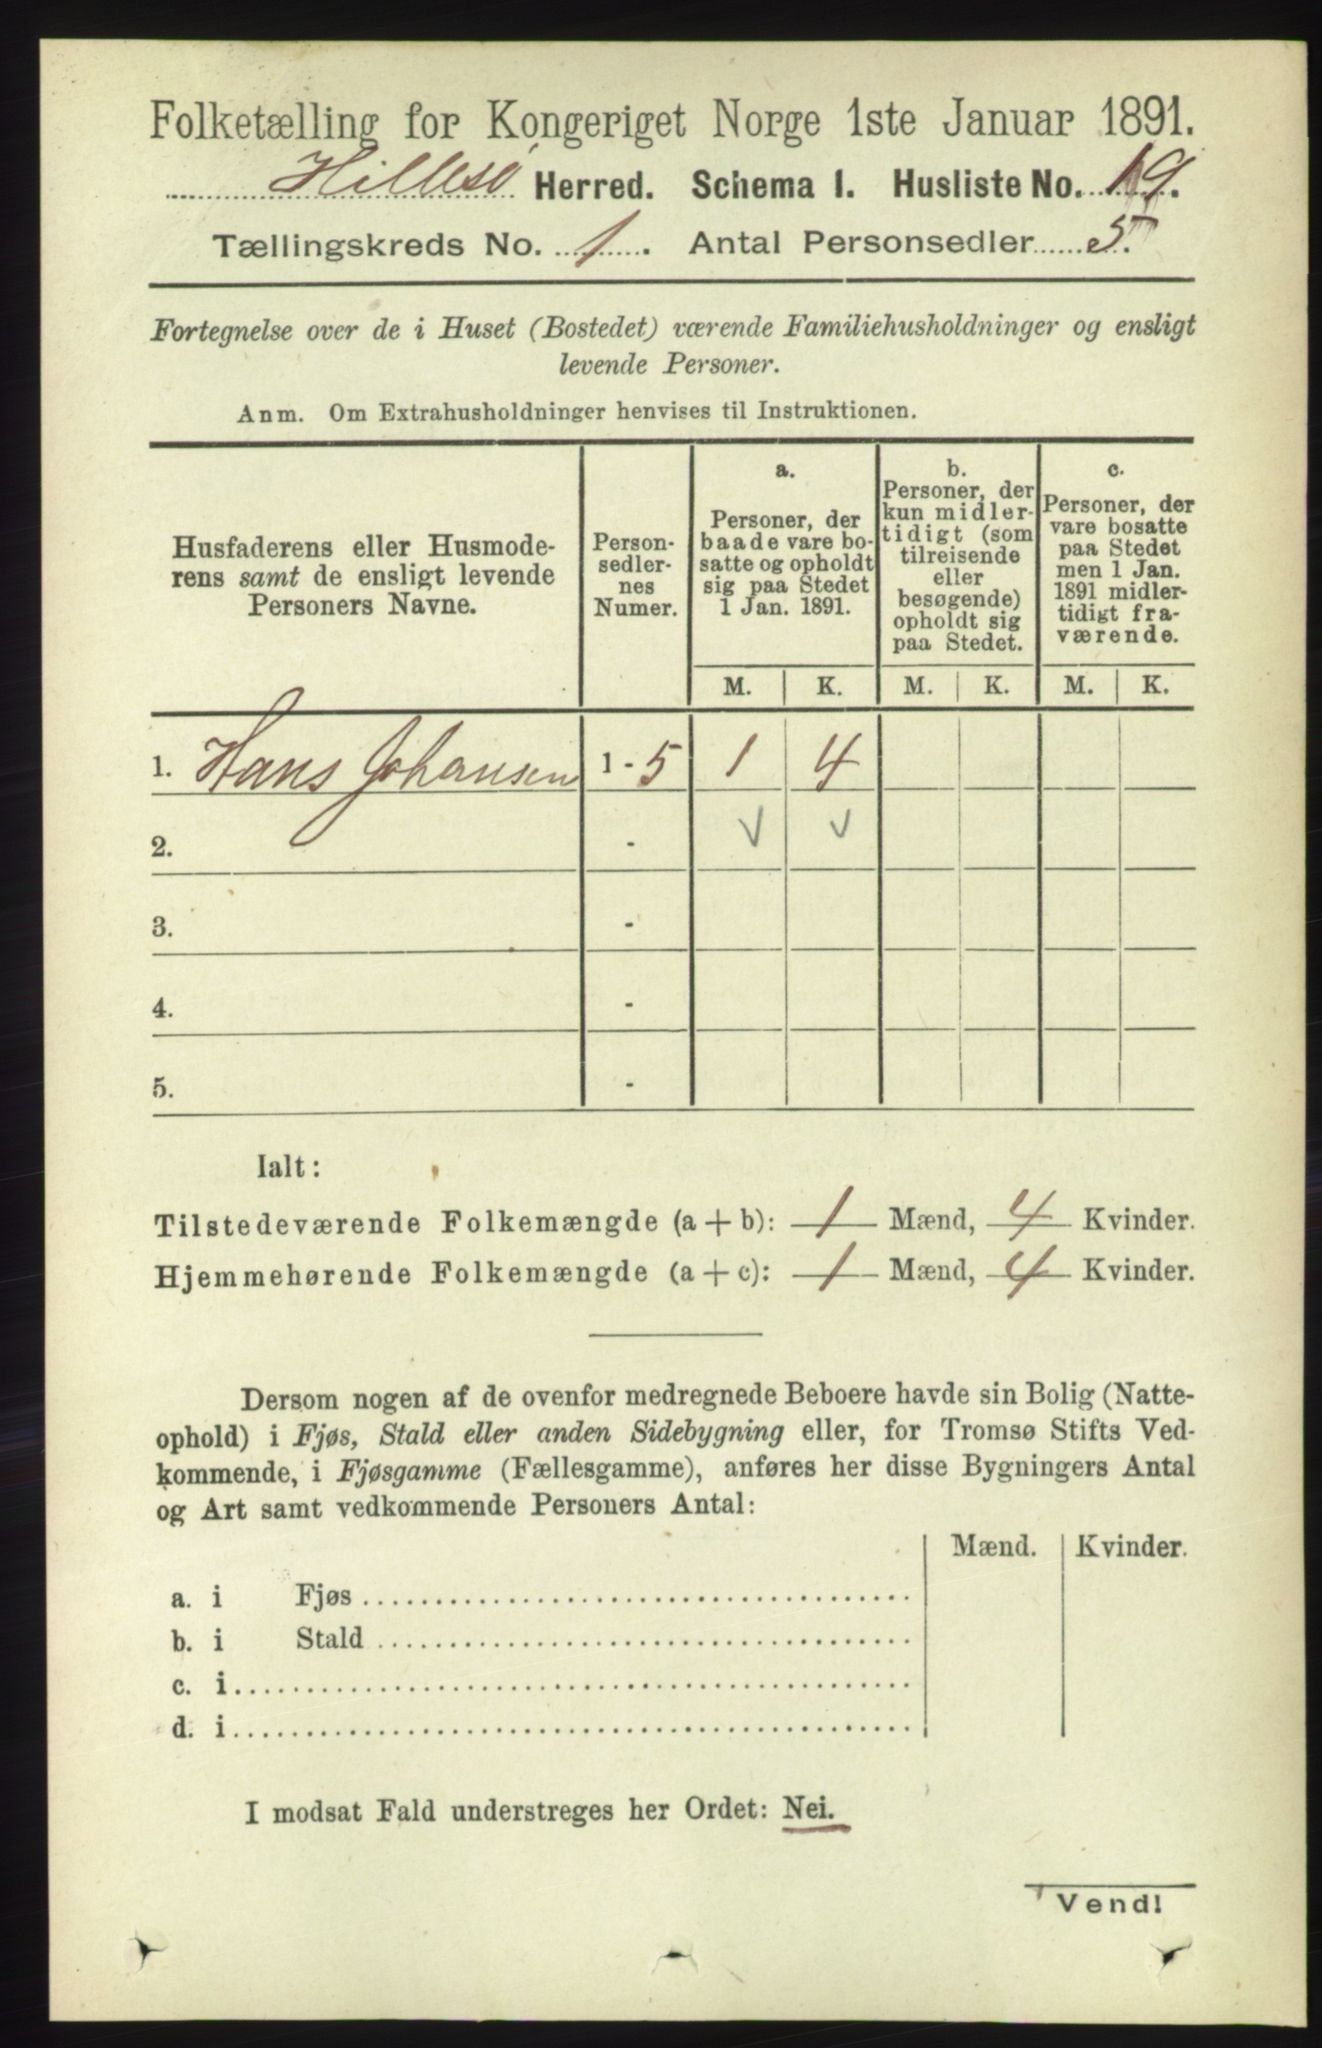 Folketælling for Kongeriget Norge 1ste Januar 1891.
Hillesö Herred. Schema 1. Husliste No. 19.
Tællingskreds No. 1. Antal Personsedler 5.
Fortegnelse over de i Huset (Bostedet) værende Familiehusholdninger og ensligt
levende Personer.
Anm. Om Extrahusholdninger henvises til Instruktionen.
Husfaderens eller Husmode-
rens samt de ensligt levende
Personers Navne.
Person-
sedler-
nes
Numer.
a.
Personer, der
baade vare bo-
satte og opholdt
sig paa Stedet
1 Jan. 1891.
b.
Personer, der
kun midler-
tidigt (som
tilreisende
eller
besøgende)
opholdt sig
paa Stedet.
c.
Personer, der
vare bosatte
paa Stedet
men 1 Jan.
1891 midler-
tidigt fra-
værende.
M. K. M. K. M. K.
1. Hans Johansen 1 - 5 1 4
2. -
3. -
4. -
5. -
Ialt:
Tilstedeværende Folkemængde (a + b): 1 Mænd, 4 Kvinder.
Hjemmehørende Folkemængde (a + c): 1 Mænd, 4 Kvinder.
Dersom nogen af de ovenfor medregnede Beboere havde sin Bolig (Natte-
ophold) i Fjøs, Stald eller anden Sidebygning eller, for Tromsø Stifts Ved-
kommende, i Fjøsgamme (Fællesgamme), anføres her disse Bygningers Antal
og Art samt vedkommende Personers Antal:
Mænd. Kvinder.
a. i Fjøs
b. i Stald
c. i
d. i
I modsat Fald understreges her Ordet: Nei.
Vend!